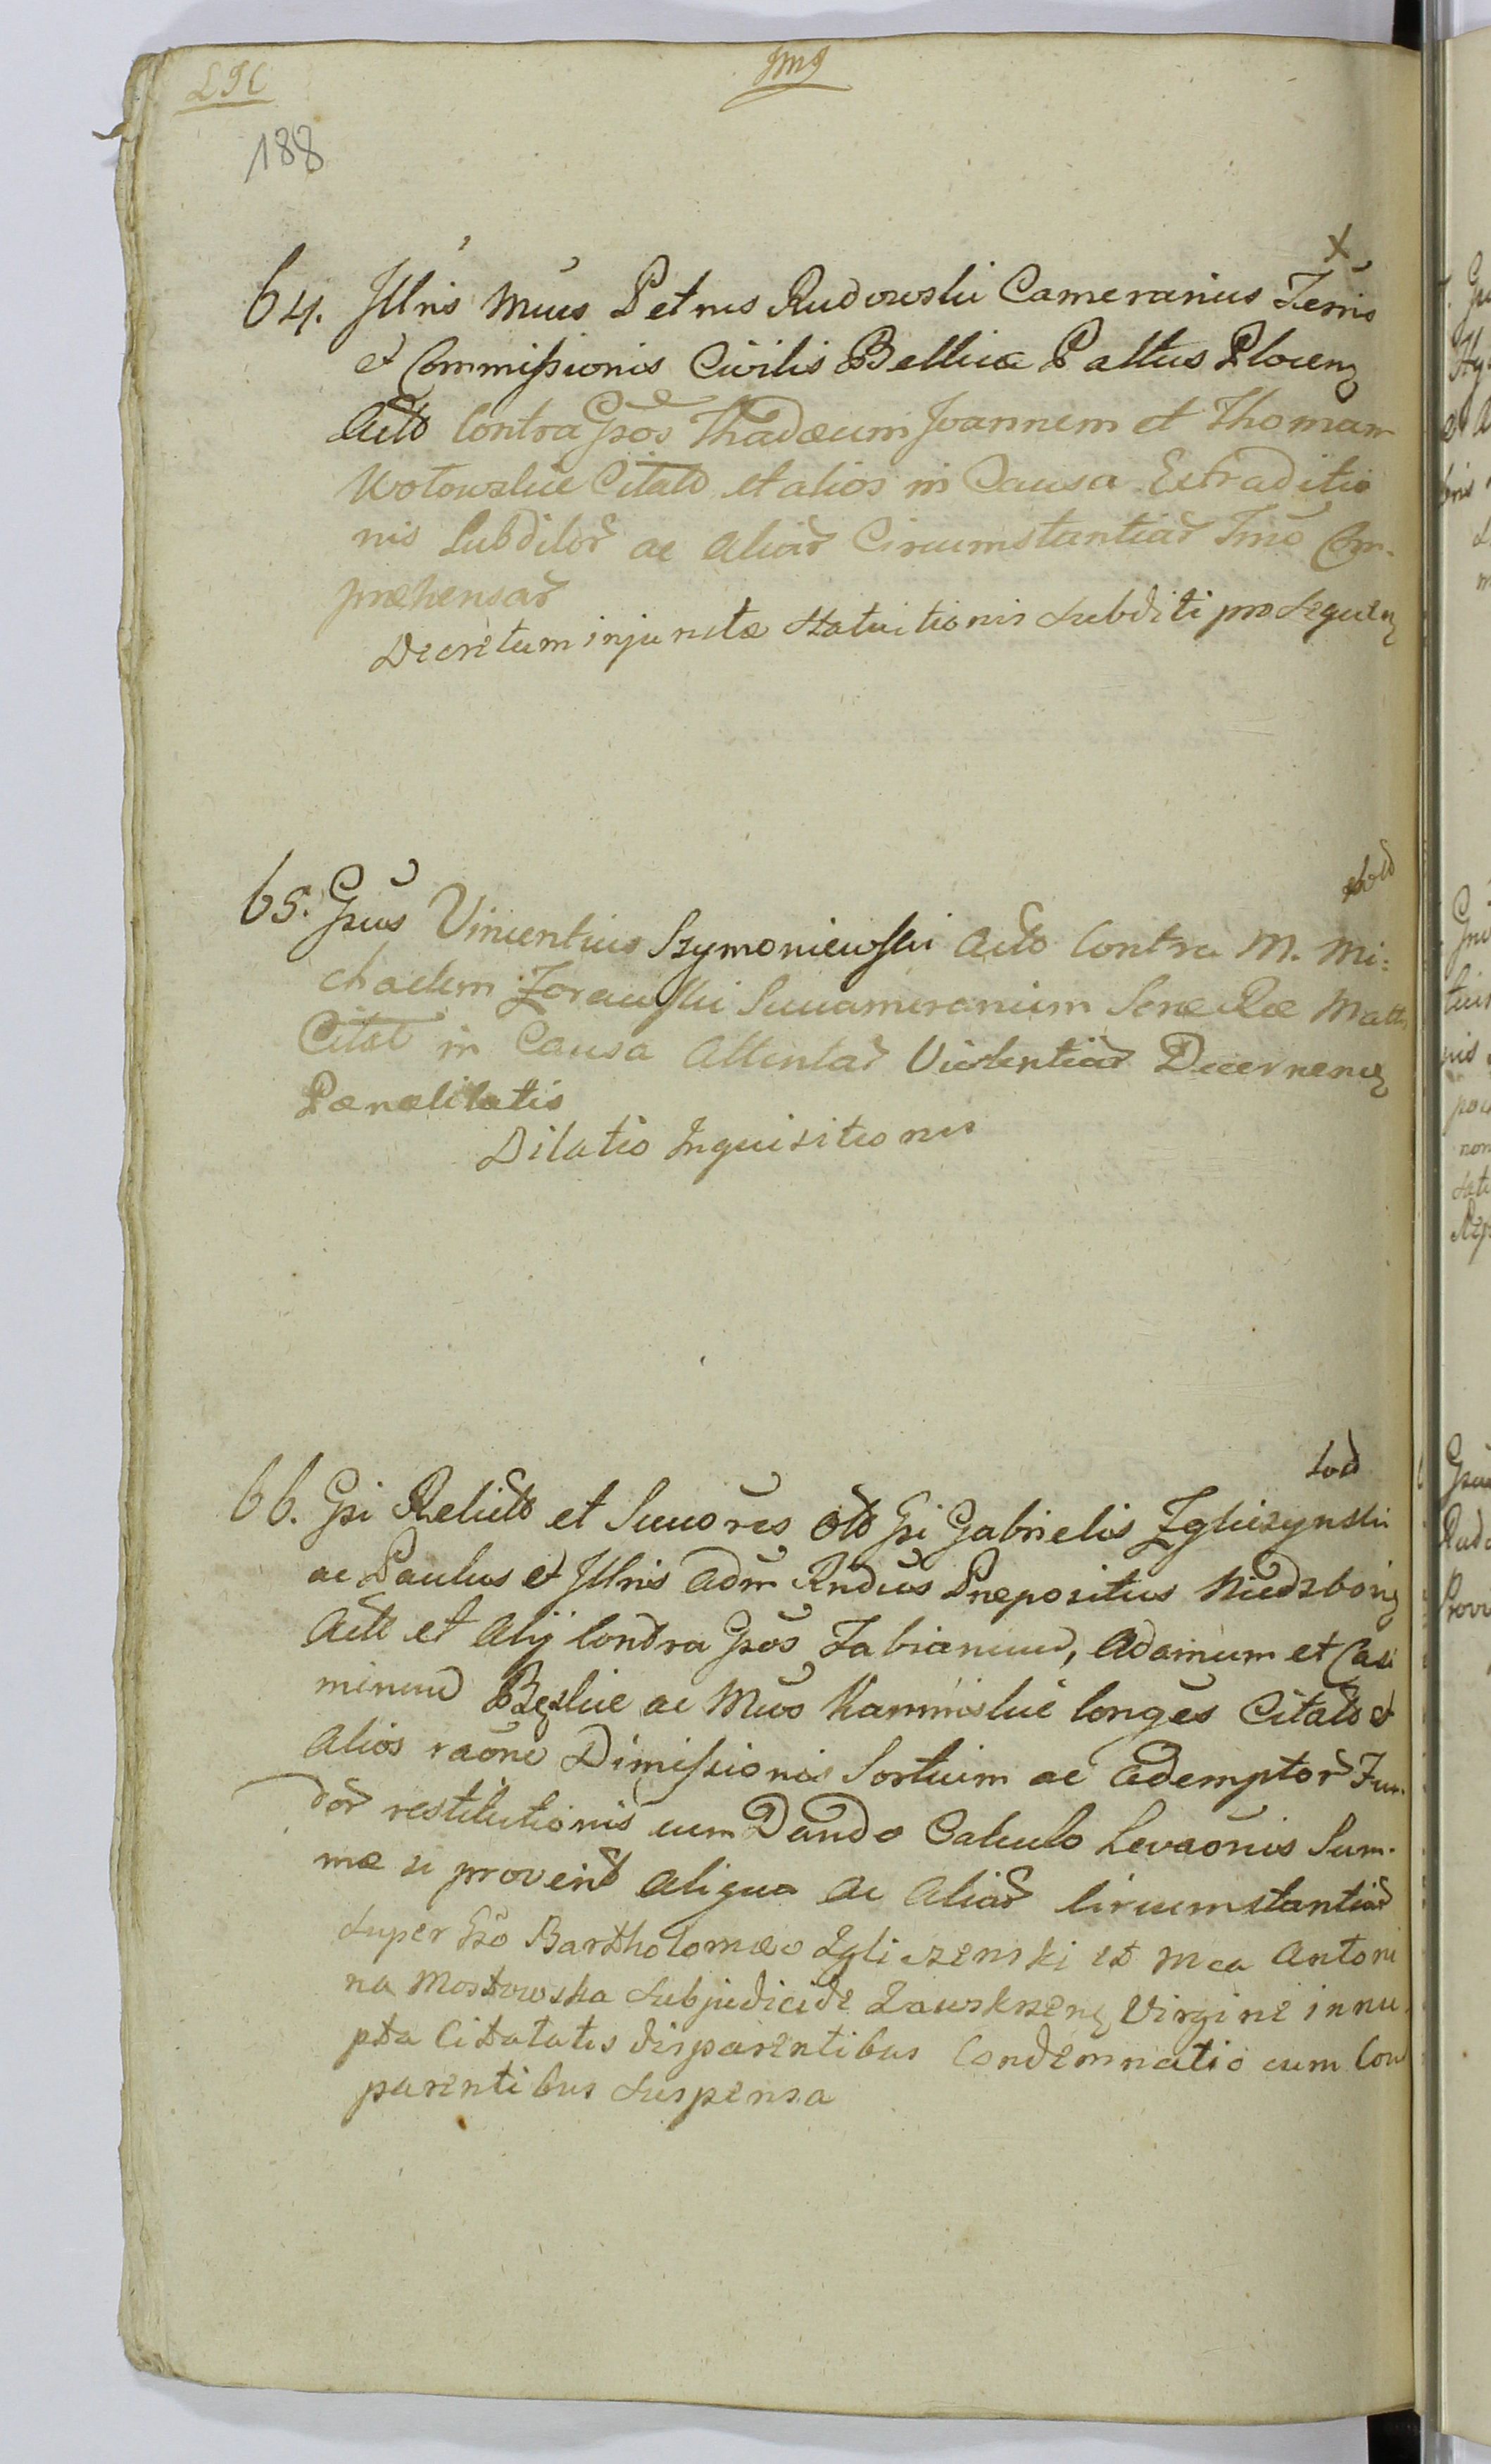 188
64. Jllris Mcus Petrus Rudowski Camerarius Terris
et Commissionis Civilis Bellicæ Pallus Plocenȝ
Acto Contra Gsos Thadæum Joannem et Thomam
Wotowskie Citato et alios in Causa Extraditio
nis Subditor ac aliar Circumstantiar Tmo Com-
præhensar
Decretum injunctæ Statuitionis Subditi prosequenȝ
65. Gsus Vincentius Szymoniewski Acto Contra M. Mi:
chaelem Zorawski Succamerarium Citat in Causa Attentar Violentiar Decernenȝ
Pænalitatis
Dilatio Inquisitionis
Sod
66. Gsi Relicto et Succores Gsi Gabrielis Zgliczynski
ac Paulus et Jllris Adm Rndus Præpositus Niedzborȝ
Acto et Alij Contra Gsos Fabianum, Adamum et Casi
mirum Bęskie ac Mcos Karniskie Conges Citato et
Alios raone Dimissionis Sortium ac Ademptor Fun-
dor restitutionis cum Dando Calculo Levaonis Sum-
mæ si provenit aliqua ac aliar Circumstantiar
Super Gso Bartholomæo Zgliczenski et Mca Antoni
na Mostowska Subjudicide Zawskrzenȝ Virgine innu-
pta Citatatis disparentibus Condemnatio cum Com
parentibus Suspensa